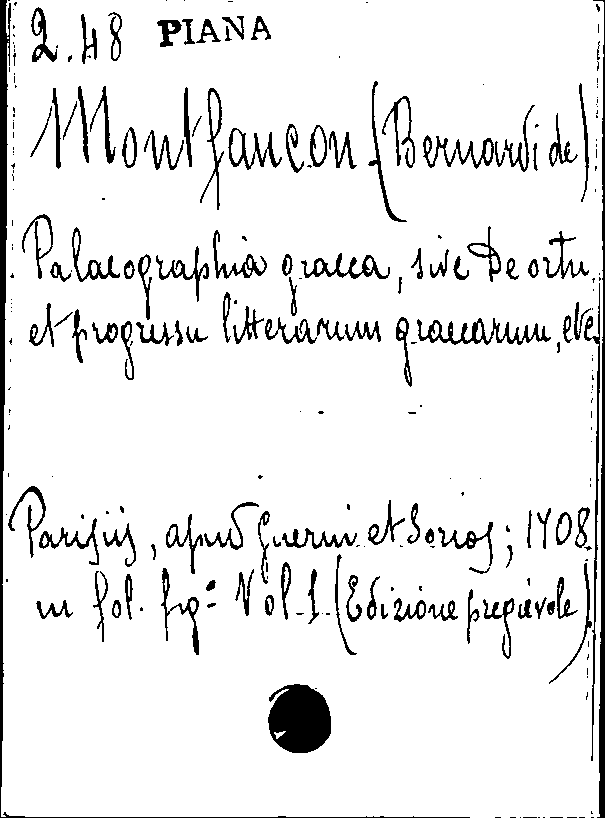 2.48 PIANA
Montfaucon (Bernardi de)
Palaeographia graeca, sive De ortu
et progressu litterarum graecarum, etc.
Parisiis, apud Guerin et Socios; 1708
in fol. fig.º Vol. 1 (Edizione pregievole)